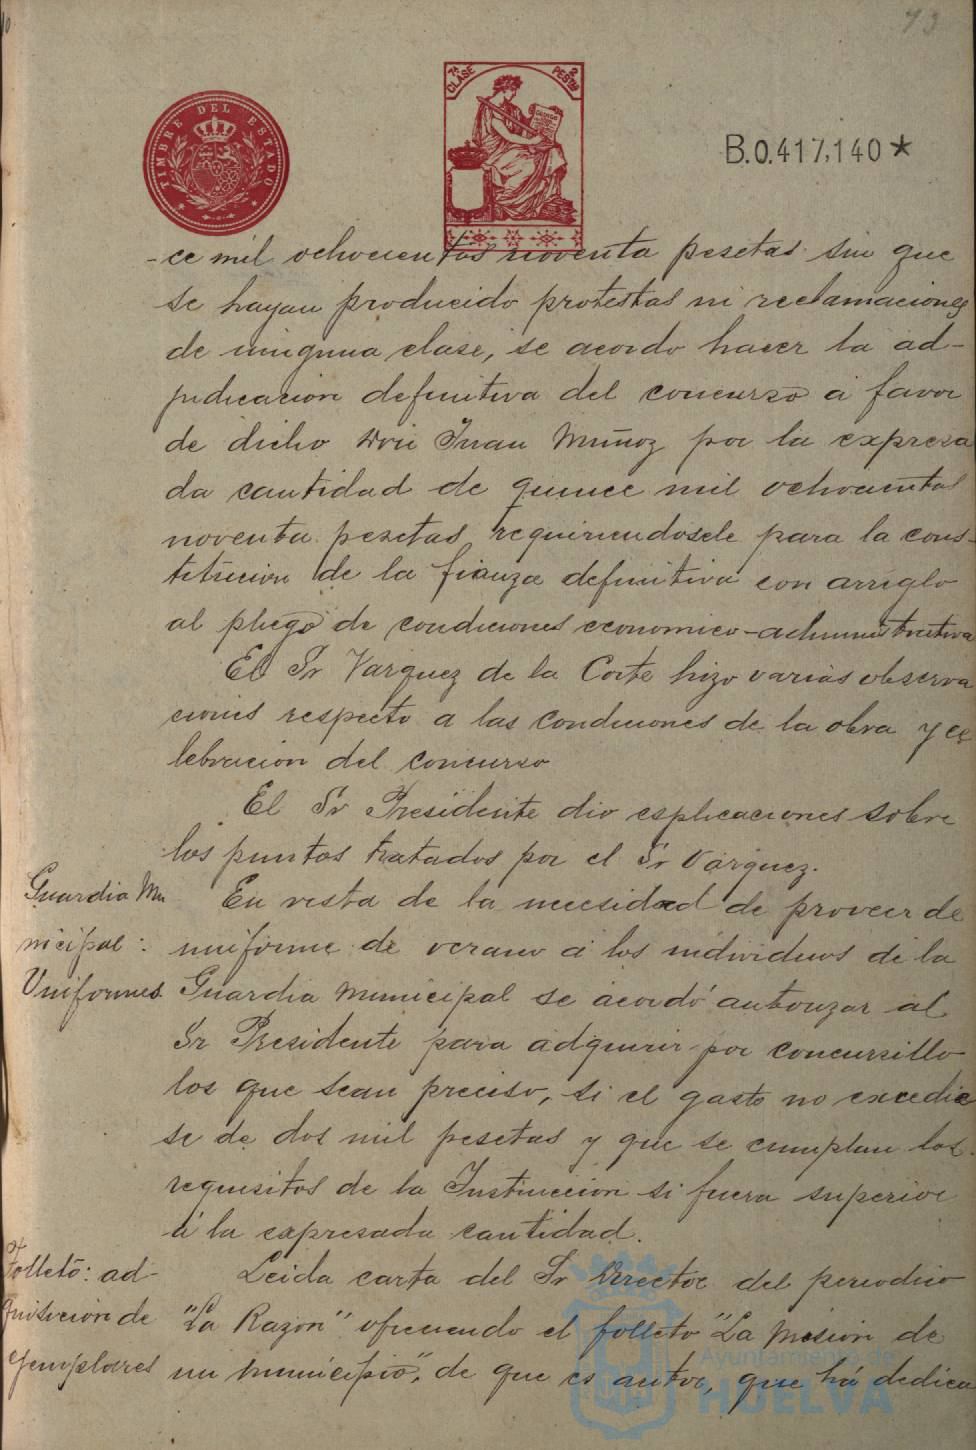 73
TIMBRE DEL ESTADO
7ª CLASE 2 PESTAS
B.0.417,140*
-ce mil ochocientos noventa pesetas sin que
se hayan producido protestas ni reclamaciones
de ninguna clase, se acordo hacer la ad-
judicacion definitiva del concurso á favor
de dicho Don Juan Muñoz por la expresa
da cantidad de quince mil ochocientas
noventa pesetas requiriendosele para la cons-
titucion de la fianza definitiva con arreglo
al pliego de condiciones economico-administrativa
El Sr Vazquez de la Corte hizo varias observa
ciones respecto a las condiciones de la obra y ce
lebracion del concurso
El Sr Presidente dio esplicaciones sobre
los puntos tratados por el Sr Vazquez.
Guardia Mu
nicipal:
Uniformes
En vista de la necesidad de proveer de
uniforme de verano á los individuos de la
Guardia Municipal se acordó autorizar al
Sr Presidente para adquirir por concursillo
los que sean preciso, si el gasto no excedie
se de dos mil pesetas y que se cumplan los
requisitos de la Instruccion si fuera superior
á la expresada cantidad.
Folleto: ad-
quisicion de
ejemplares
Leida carta del Sr Director del periodico
"La Razon" ofreciendo el folleto "La mision de
un municipio", de que es autor, que há dedica
Ayuntamiento de
HUELVA